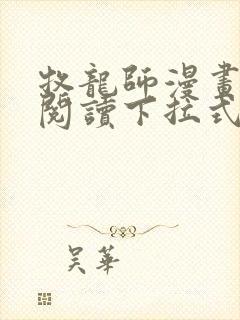 牧龍師漫畫
閱讀下拉式
吴華